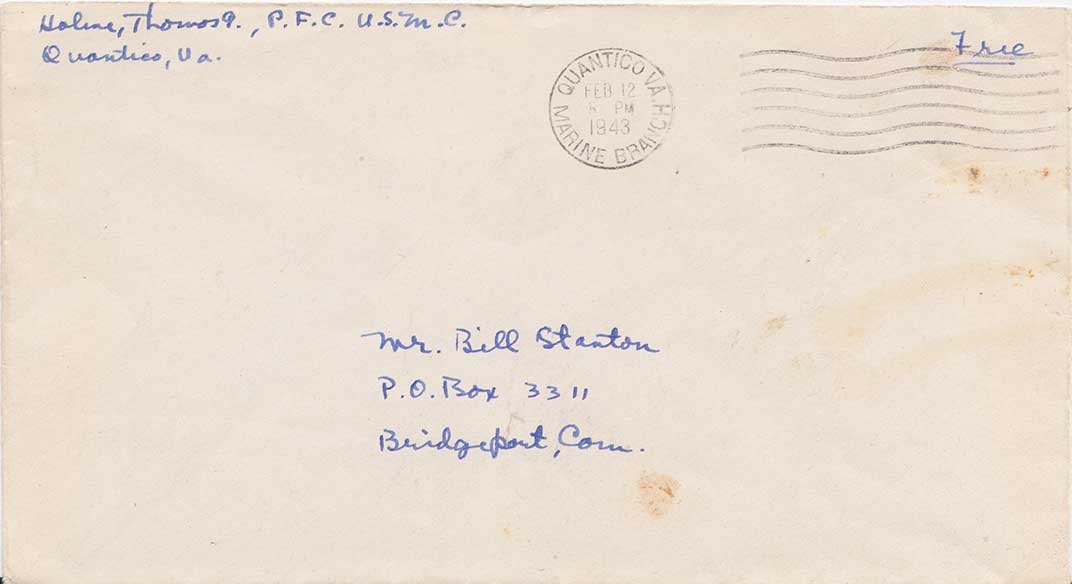 Thomas P.F.C. U.S.M.C.
Quantico, Va.
Free
QUANTICO VA.
FEB 12
PM
1943
MARINE BRANCH
Mr. Bill Stanton
P.O. Box 3311
Bridgeport, Conn.